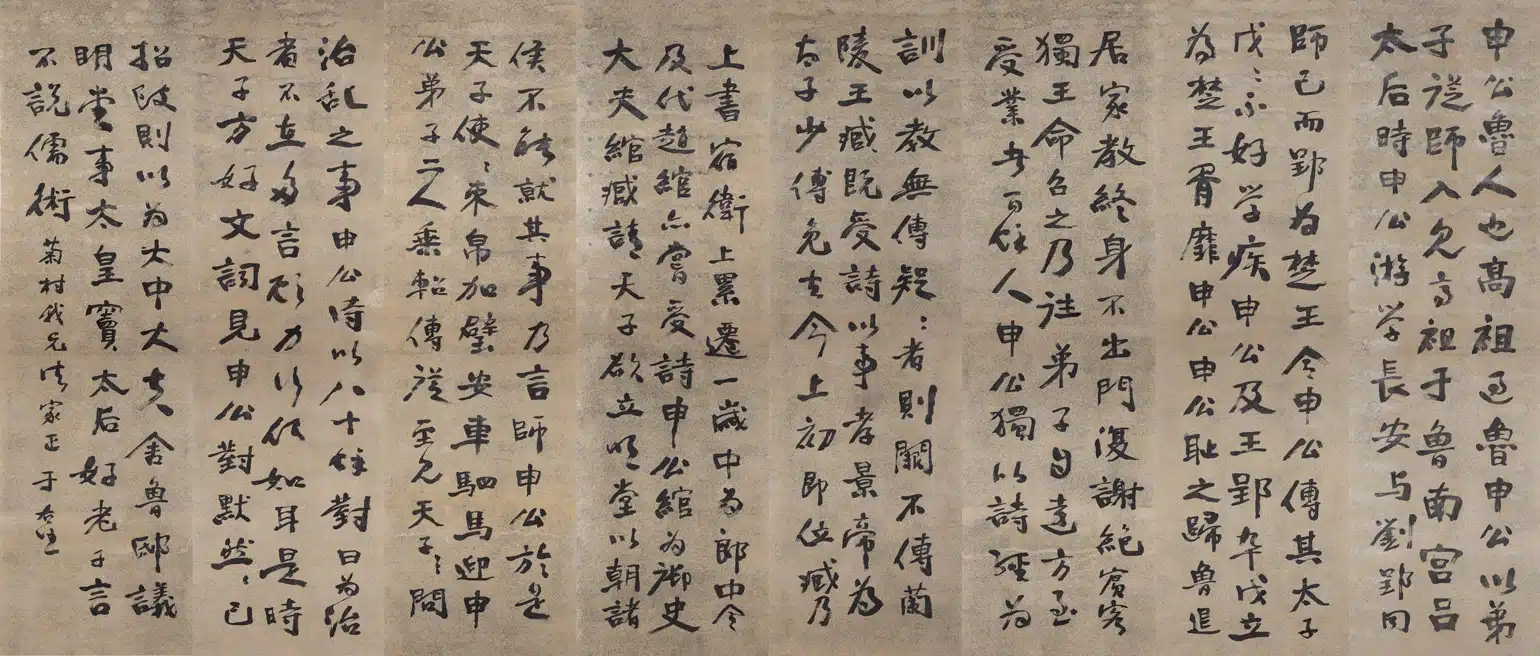 申公魯人也高祖過魯申公以弟
子從師入見高祖于魯南宮呂
太后時申公游学長安与劉郢同
師已而郢为楚王令申公傅其太子
戊〻不好学疾申公及王郢卒戊立
为楚王胥靡申公申公耻之歸魯退
居家教終身不出門復謝絕賓客
獨王命召之乃往弟子自遠方至
受業者百餘人申公獨以詩經为
訓以教無傳疑〻者則闕不傳蘭
陵王臧既受詩以事孝景帝为
太子少傅免去今上初即位臧乃
上書宿衛上累遷一歲中为郎中令
及代趙綰亦嘗受詩申公綰为御史
大夫綰臧請天子欲立明堂以朝諸
侯不能就其事乃言師申公於是
天子使〻束帛加璧安車駟馬迎申
公弟子二人乘軺傳從至見天子〻問
治乱之事申公時以八十餘對曰为治
者不在多言顧力行何如耳是時
天子方好文詞見申公對默然〻已
招致則以为大中大夫舍魯邸議
明堂事太皇竇太后好老子言
不説儒術 菊村我兄法家正 于右任